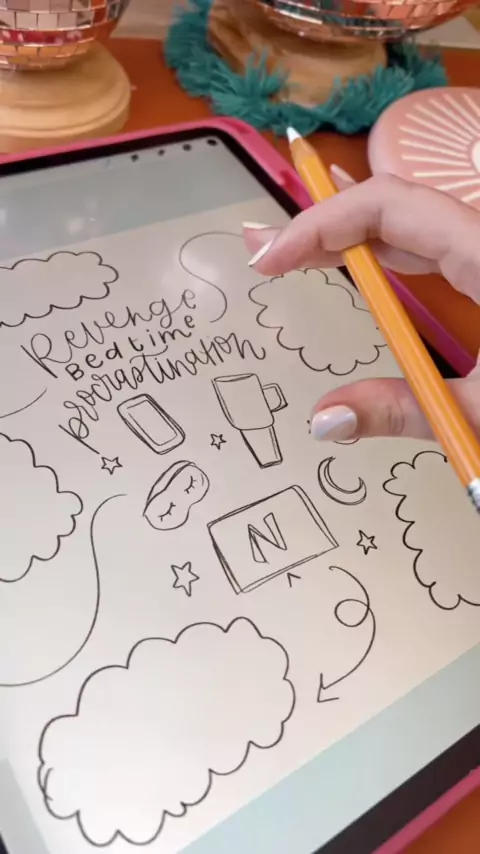 Revenge
Bedtime
procrastination
N